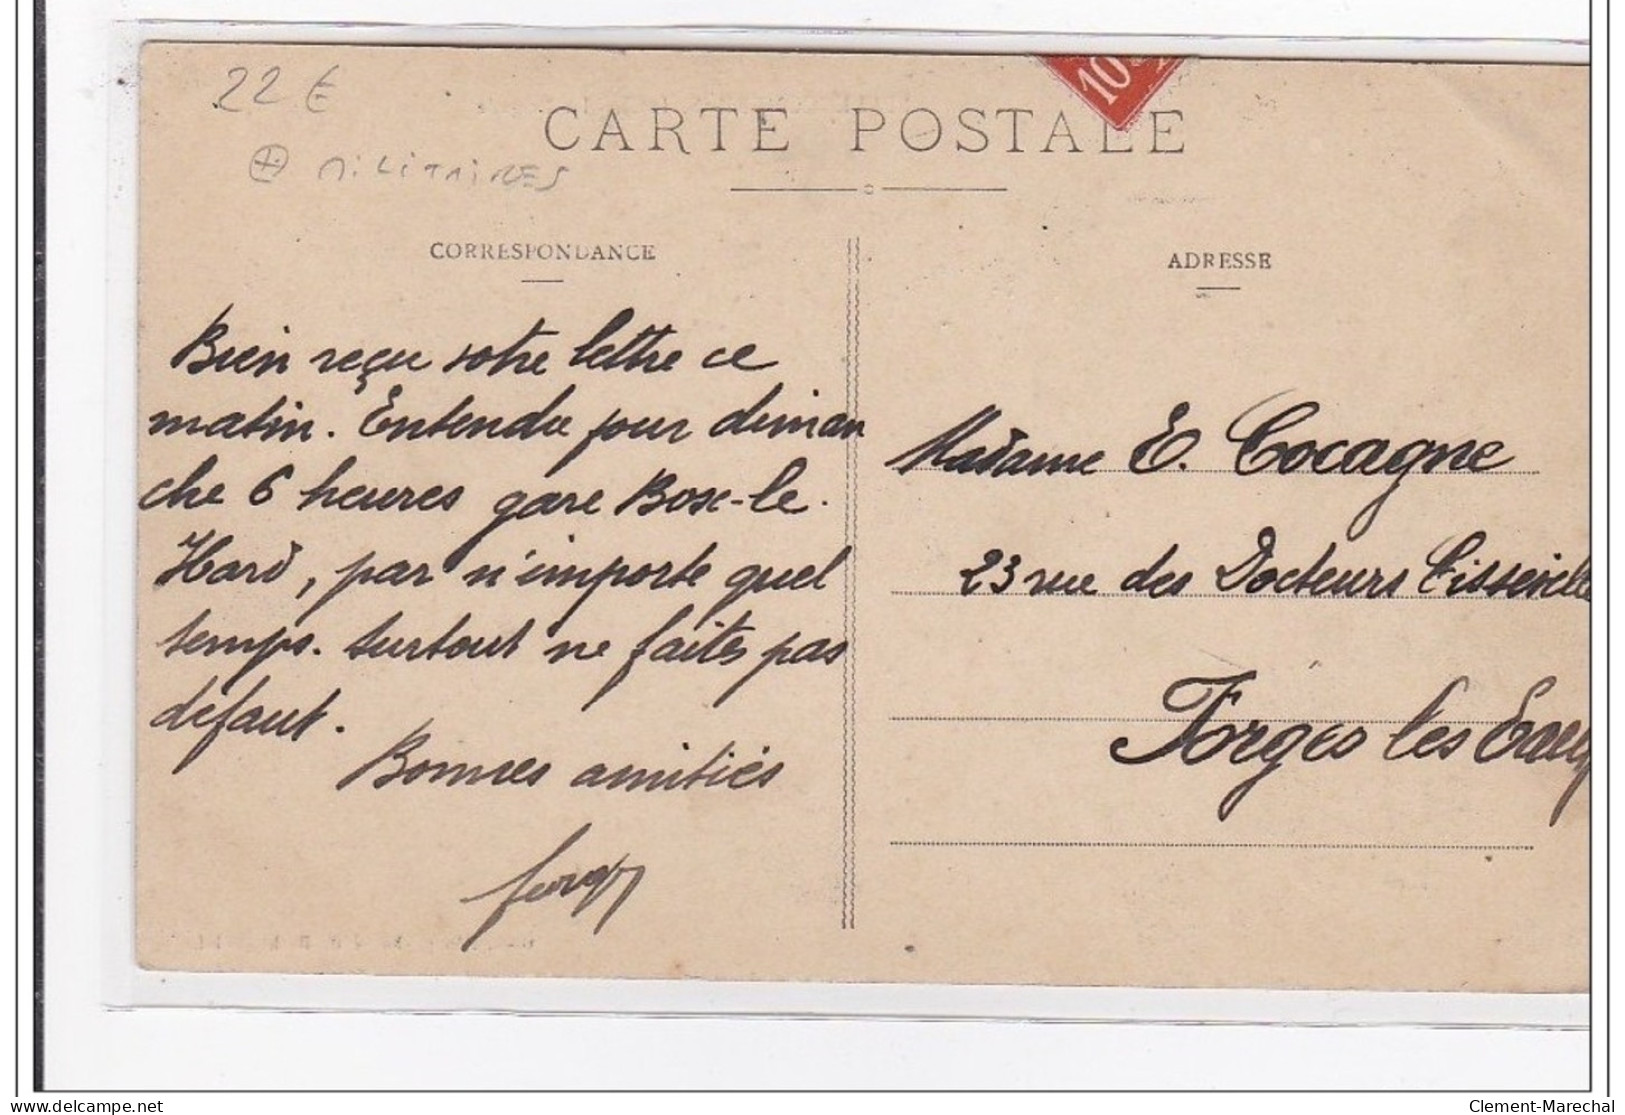 22 €
+ MILITAIRES
CARTE POSTALE
10
CORRESPONDANCE
Bien reçu votre lettre ce
matin. Entendu pour diman
che 6 heures gare Bosc-le-
Hard, par n'importe quel
temps. Surtout ne faites pas
défaut.
Bonnes amitiés
ADRESSE
Madame E. Cocagne
23 rue des Docteurs
Forges les Eaux
delcampe.net
Clement-Marechal